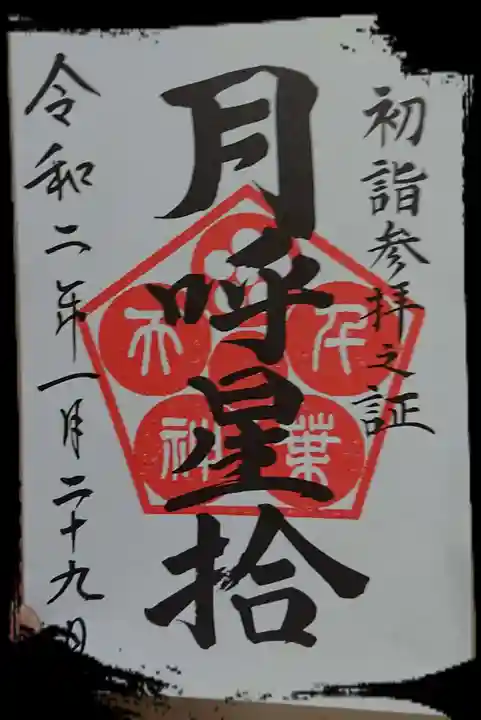 初詣参拝之証
月呼星拾
千葉
天神
令和二年一月二十九日